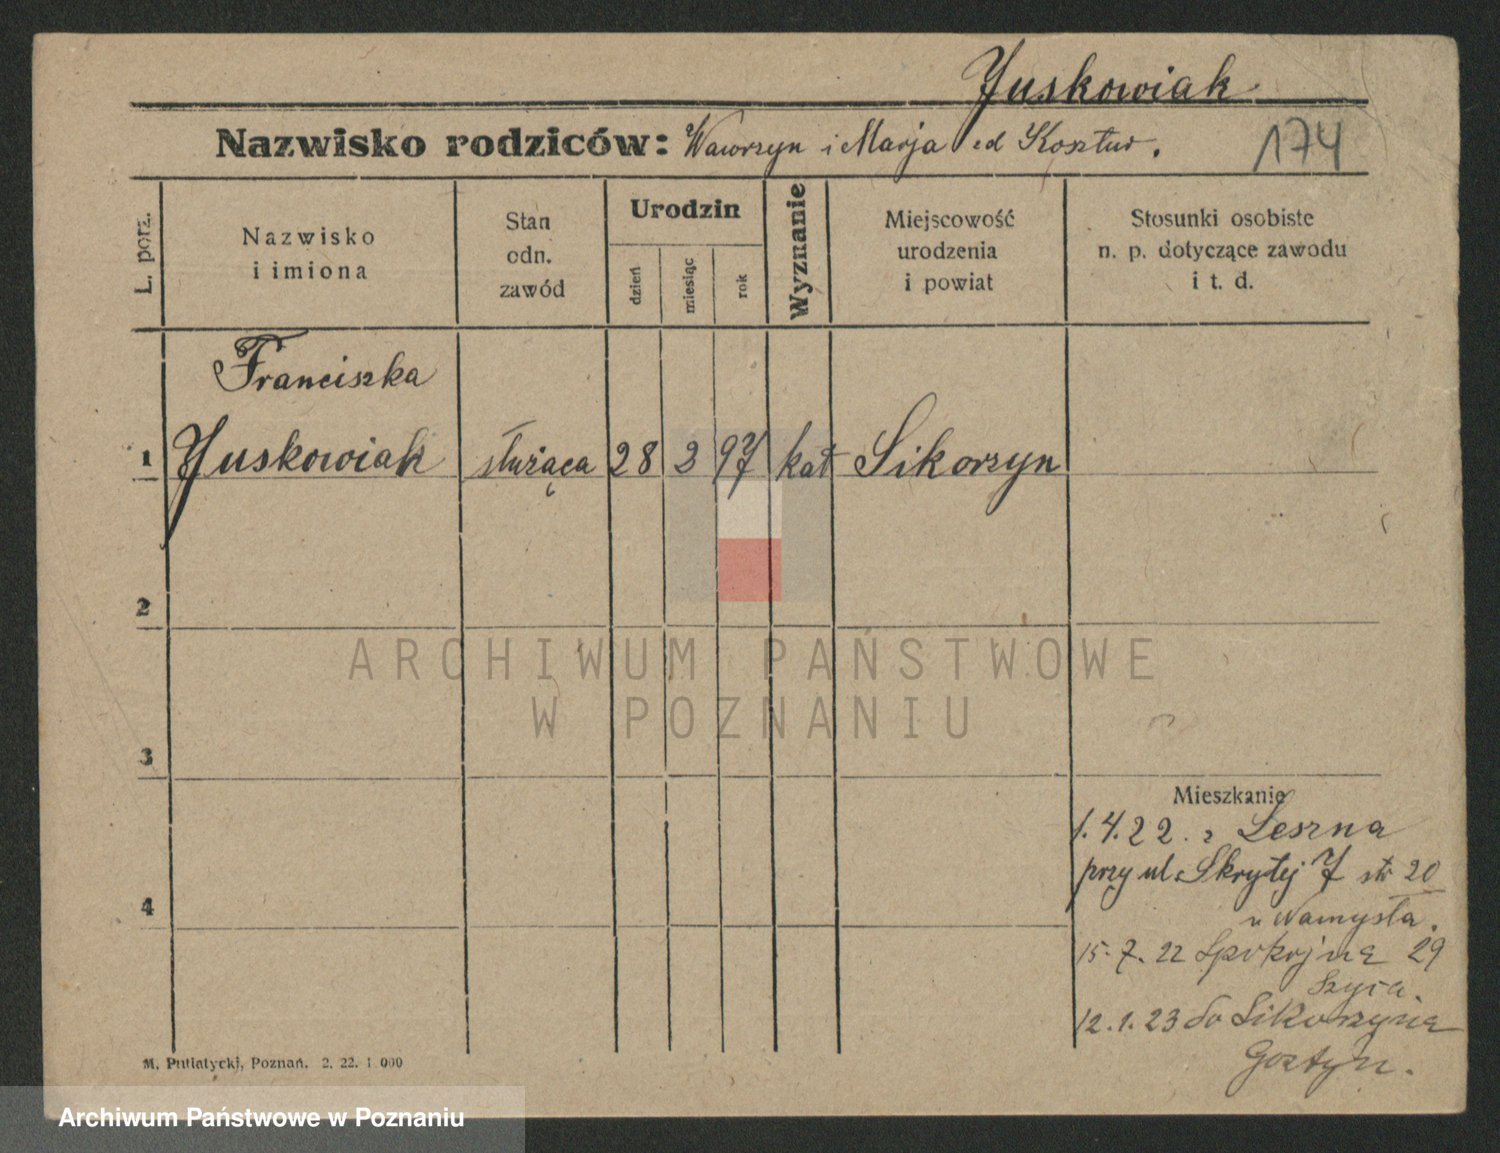 Juskowiak
Nazwisko rodziców: Wawrzyn i Marja Kosztur.
174
L. porz.
Nazwisko
i imiona
Stan
odn.
zawód
Urodzin
dzień
miesiąc
rok
Wyznanie
Miejscowość
urodzenia
i powiat
Stosunki osobiste
n. p. dotyczące zawodu
i t. d.
Franciszka
1 Juskowiak służąca 28 2 97 kat Sikorzyn
2
3
4
Mieszkanie
1.4.22. z Leszna
przy ul. Skrytej 7 str 20
u
15.7.22 Spokojna 29
12.1.23 do Sikorzyna
Gostyn.
M. Putiatycki, Poznań. 2. 22. 1.000
ARCHIWUM PAŃSTWOWE
W POZNANIU
Archiwum Państwowe w Poznaniu